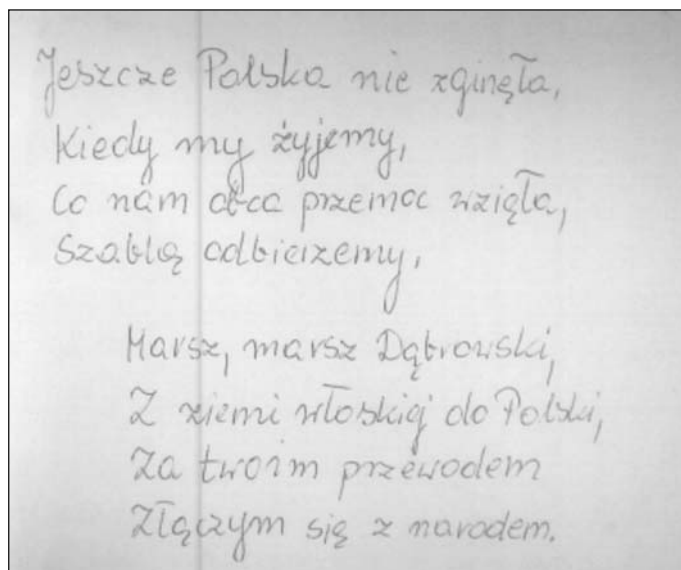 Jeszcze Polska nie zginęła,
Kiedy my żyjemy,
Co nam obca przemoc wzięła,
Szablą odbierzemy,
Marsz, marsz Dąbrowski,
Z ziemi włoskiej do Polski,
Za twoim przewodem
Złączym się z narodem.